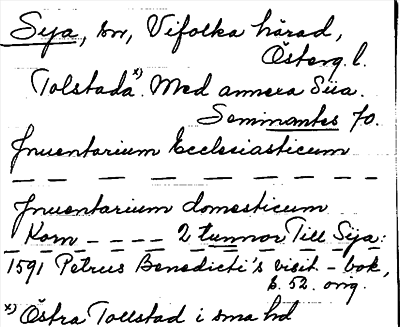 Sya, sn, Vifolka härad,
Österg. l.
Tolstada x). Med annexa Siia.
Seminantes 70.
Inuentarium Ecclesiasticum
— — — — — — — — — —
Inuentarium domesticum
Korn — — — — 2 tunnor Till Sija:
1591 Petrus Benedicti's visit-bok,
b. 52. orig.
x) Östra Tollstad i sma hd